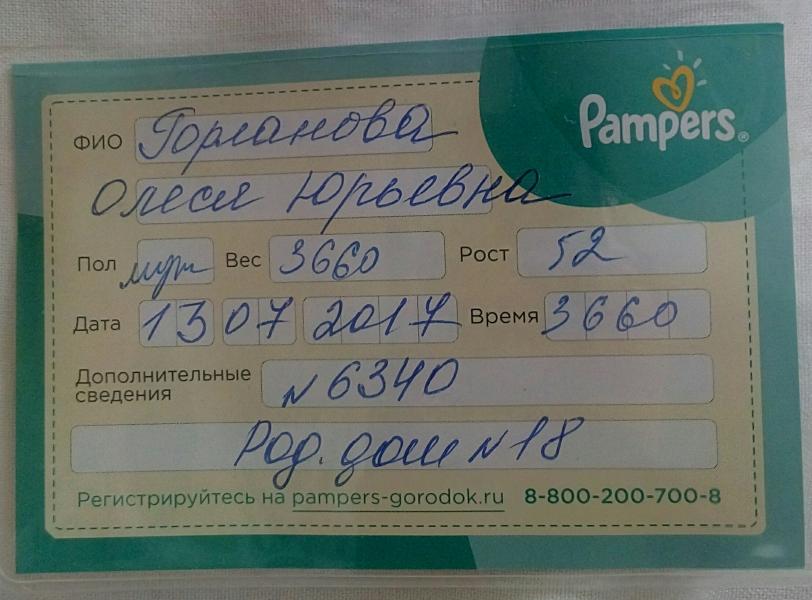 Pampers®
ФИО Горланова
Олеся Юрьевна
Пол муж Вес 3660 Рост 52
Дата 13 07 2017 Время 3660
Дополнительные
сведения N 6340
Род. дом N 18
Регистрируйтесь на pampers-gorodok.ru 8-800-200-700-8